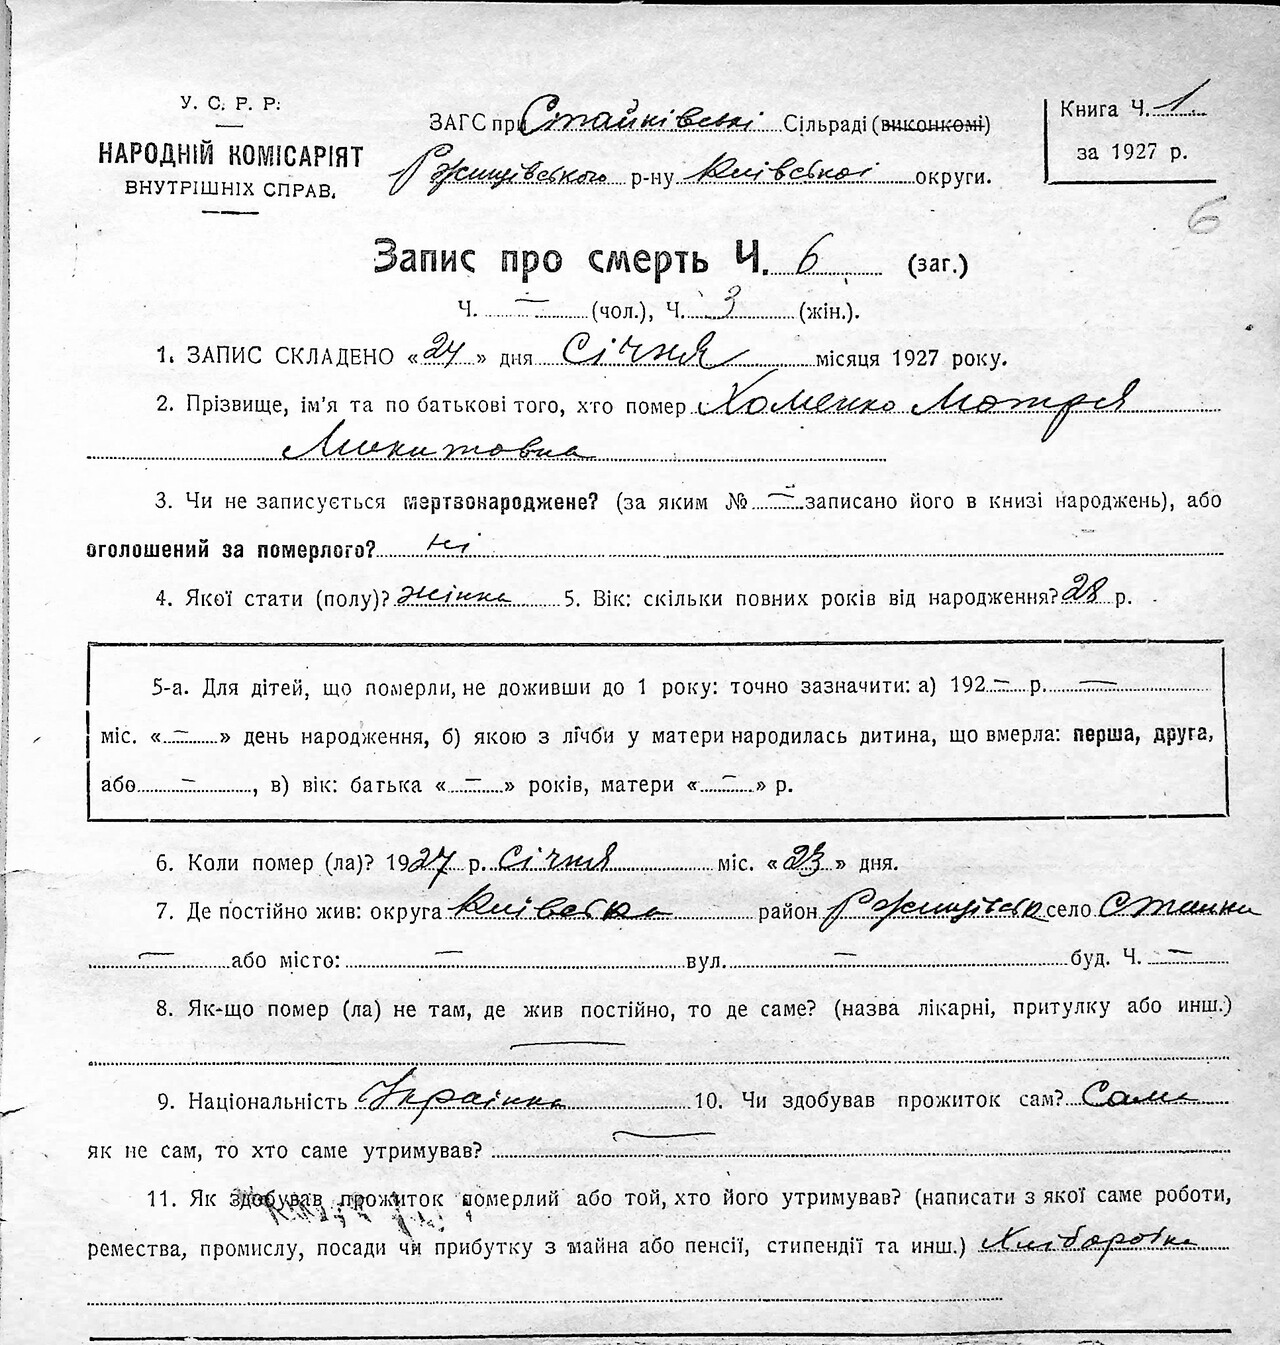 У. С. Р. Р.
НАРОДНІЙ КОМІСАРІЯТ
ВНУТРІШНІХ СПРАВ.
ЗАГС при Стайківські Сільраді (виконкомі)
Ржищівського р-ну Київської округи.
Книга Ч. 1.
за 1927 р.
6
Запис про смерть Ч. 6 (заг.)
Ч. — (чол.), Ч. 3 (жін.).
1. ЗАПИС СКЛАДЕНО «24» дня Січня місяця 1927 року.
2. Прізвище, ім'я та по батькові того, хто помер Хоменко Мотря
Микитовна
3. Чи не записується мертвонароджене? (за яким № — записано його в книзі народжень), або
оголошений за померлого? ні
4. Якої стати (полу)? жінка 5. Вік: скільки повних років від народження? 28 р.
5-а. Для дітей, що померли, не доживши до 1 року: точно зазначити: а) 192 — р. —
міс. « — » день народження, б) якою з лічби у матери народилась дитина, що вмерла: перша, друга,
або — , в) вік: батька « — » років, матери « — » р.
6. Коли помер (ла)? 1927 р. січня міс. «23» дня.
7. Де постійно жив: округа Київська район Ржищівськ село Стайки
— або місто: — вул. — буд. Ч. —
8. Як-що помер (ла) не там, де жив постійно, то де саме? (назва лікарні, притулку або инш.)
—
9. Національність Українка 10. Чи здобував прожиток сам? Сама
як не сам, то хто саме утримував? —
11. Як здобував прожиток померлий або той, хто його утримував? (написати з якої саме роботи,
ремества, промислу, посади чи прибутку з майна або пенсії, стипендії та инш.) Хліборобка